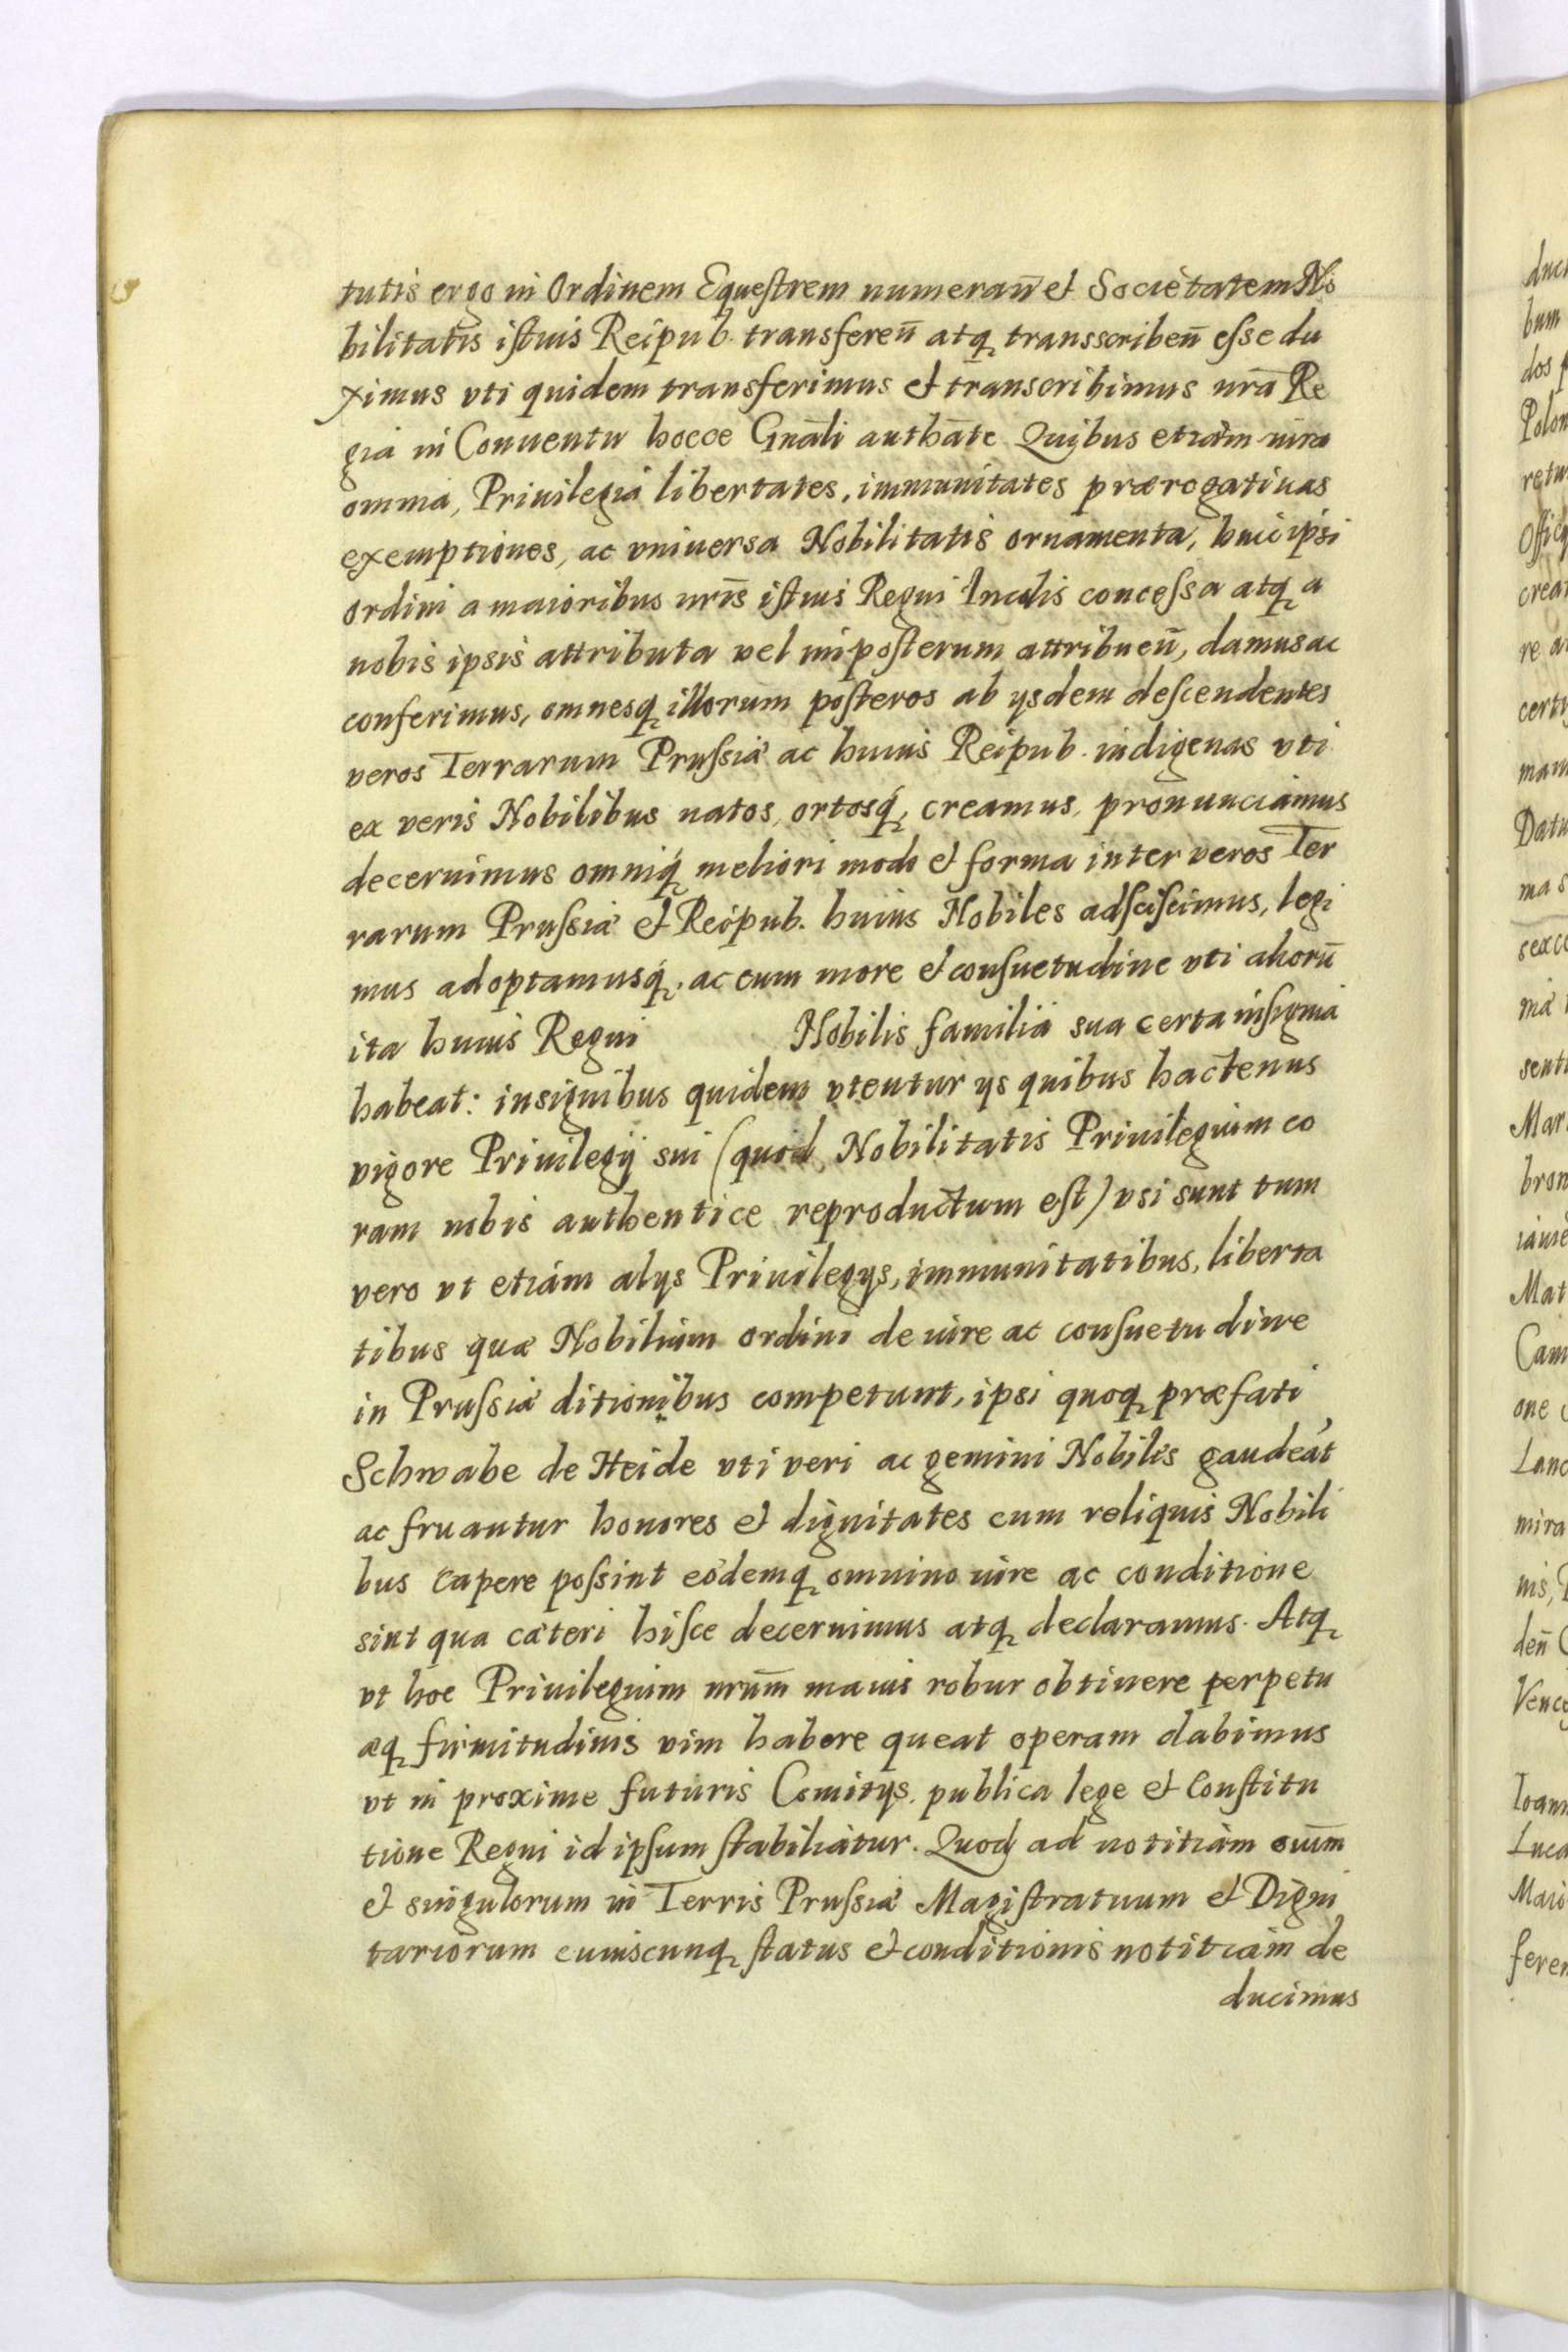 tutis ergo in Ordinem Equestrem numeran̄ et Societatem No
bilitatis istius Reipub. transferen̄ atq₃ transscriben̄ esse du
ximus vti quidem transferimus et transcribimus nrā Re
gia in Conuentu hocce Gnāli authāte Quibus etiam iura
omnia, Priuilegia libertates, immunitates prærogatiuas
exemptiones, ac vniuersa Nobilitatis ornamenta, huic ipsi
ordini a maioribus nrīs istius Regni Incolis concessa atq₃ a
nobis ipsis attributa vel imposterum attribuen̄, damus ac
conferimus, omnesq₃ illorum posteros ab ijsdem descendentes
veros Terrarum Prussiæ ac huius Reipub. indigenas vti
ex veris Nobilibus natos, ortosq́₃, creamus, pronunciamus
decernimus omniq́₃ meliori modo et forma inter veros Ter
rarum Prussiæ et Reipub. huius Nobiles adsciscimus, legi
mus adoptamusq́₃. ac cum more et consuetudine vti aliorū
ita huius Regni Nobilis familia sua certa insignia
habeat: insignibus quidem vtentur ijs quibus hactenus
vigore Priuilegij sui (quod Nobilitatis Priuilegium co
ram nobis authentice reproductum est) vsi sunt tum
vero vt etiam alijs Priuilegijs, immunitatibus, liberta
tibus quæ Nobilium ordini de iure ac consuetudine
in Prussiæ ditionibus competunt, ipsi quoq₃ præfati
Schwabe de Heide vti veri ac gemini Nobiles gaudeāt
ac fruantur honores et dignitates cum reliquis Nobili
bus capere possint eodemq₃ omnino iure ac conditione
sint qua cæteri hisce decernimus atq₃ declaramus. Atq₃
vt hoc Priuilegium nrūm maius robur obtinere perpetu
æq₃ firmitudinis vim habere queat operam dabimus
vt in proxime futuris Comitijs, publica lege et Constitu
tione Regni id ipsum stabiliatur. Quod ad notitiam oīum
et singulorum in Terris Prussiæ Magistratuum et Digni
tariorum cuiuscunq₃ status et conditionis notitiam de
ducimus